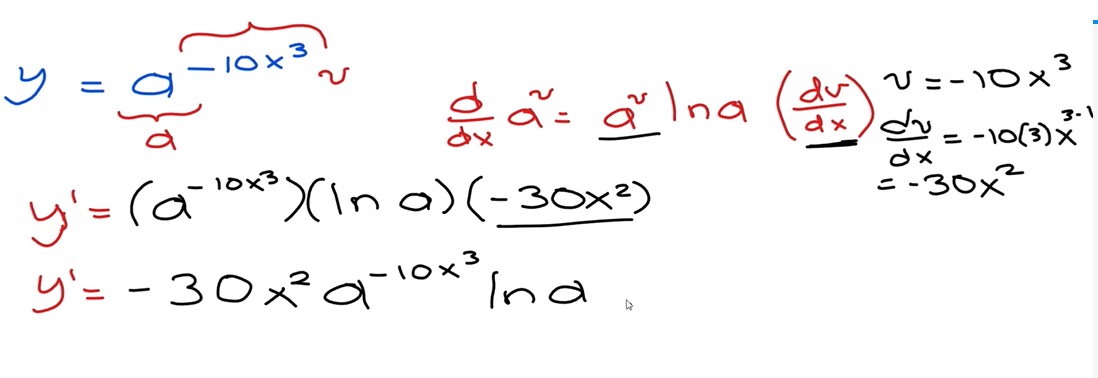 y = a^{-10x^3} v
a
d/dx a^v = a^v ln a (dv/dx)
v = -10x^3
dv/dx = -10(3)x^{3-1}
= -30x^2
y' = (a^{-10x^3})(ln a)(-30x^2)
y' = -30x^2 a^{-10x^3} ln a